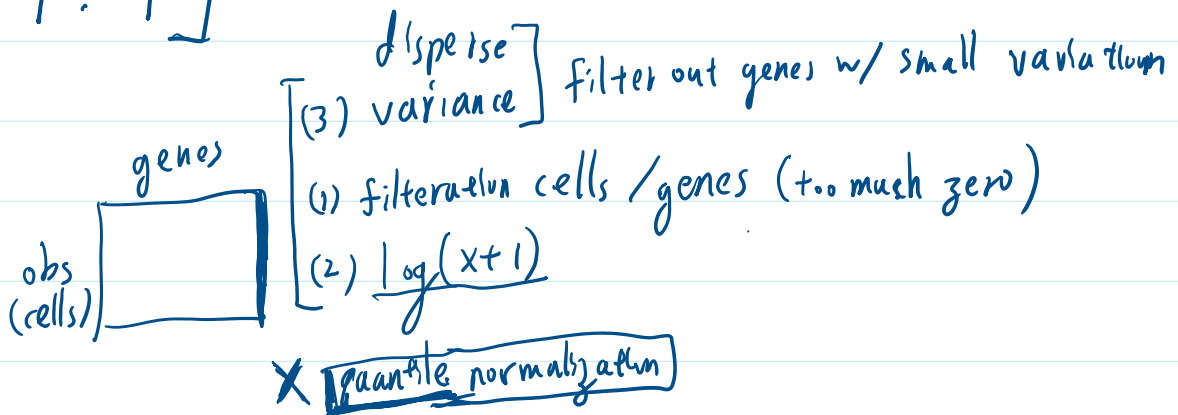 disperse
(3) variance ] filter out genes w/ small variation
genes
(1) filteration cells / genes (too much zero)
obs
(cells)
(2) log(x+1)
X quantile normalization